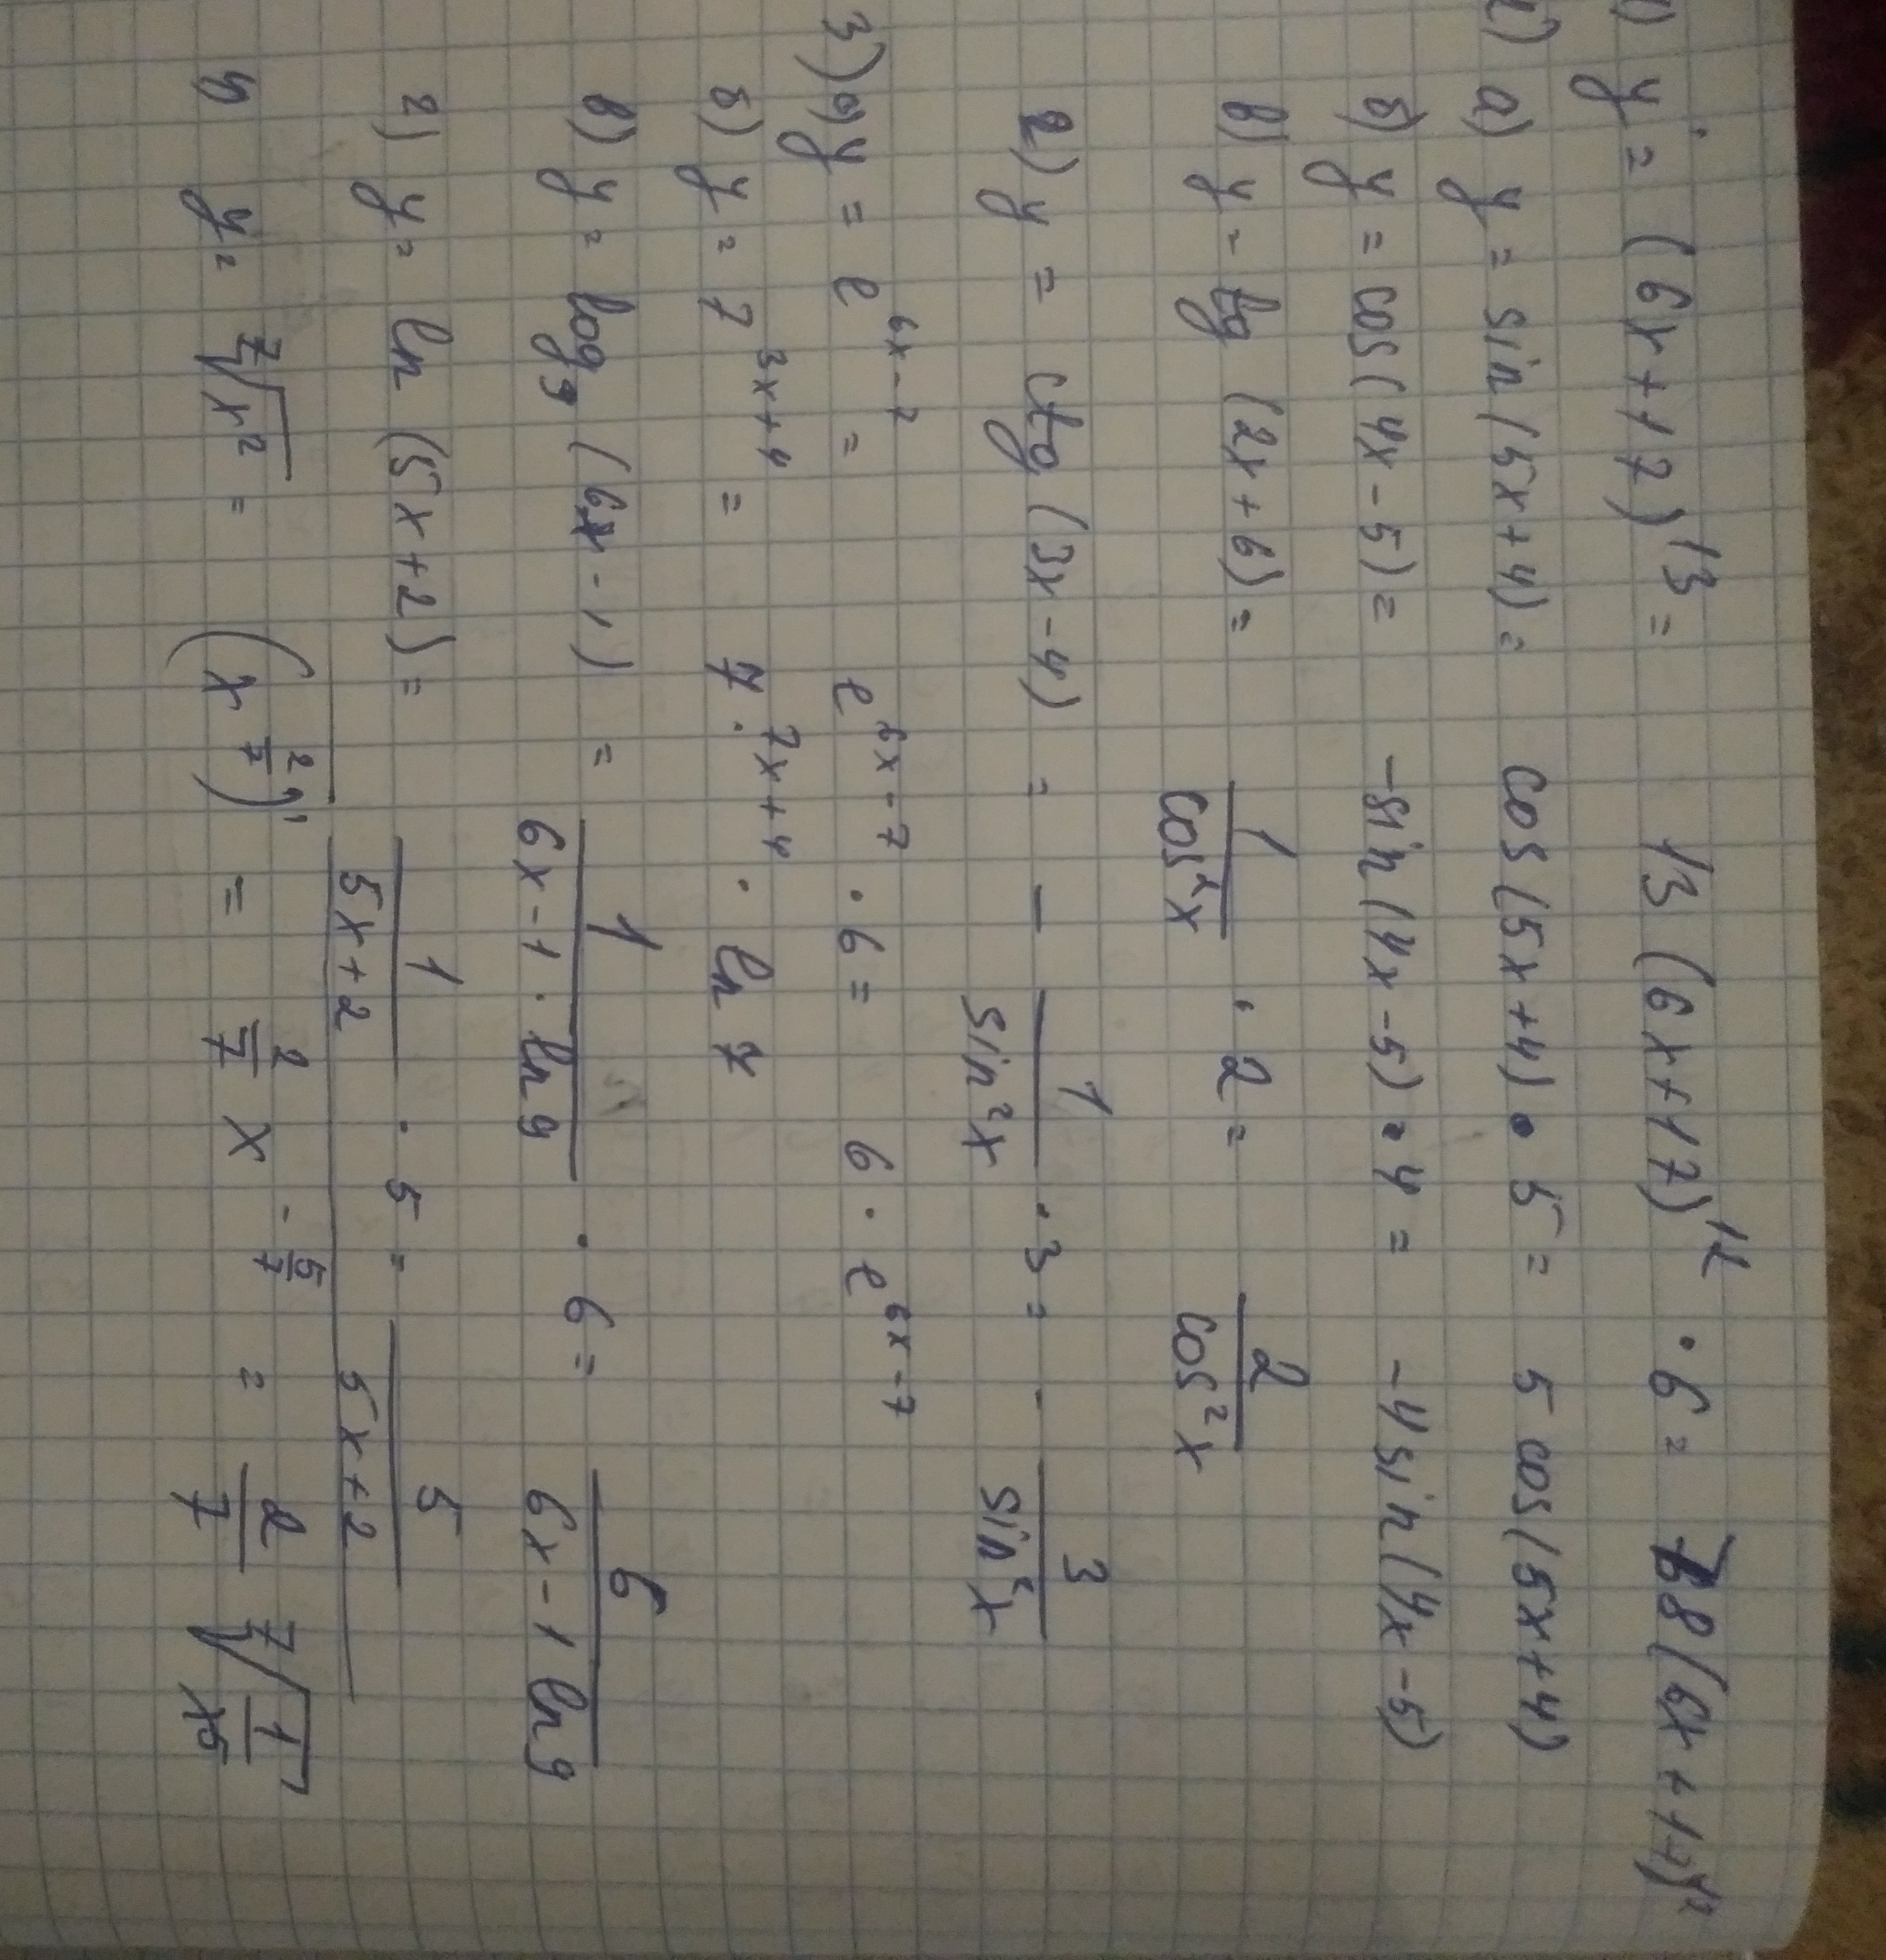 1) y' = (6x+17)^13 = 13(6x+17)^12 · 6 = 78(6x+17)^12
2) а) y = sin(5x+4) = cos(5x+4) · 5 = 5 cos(5x+4)
б) y = cos(4x-5) = -sin(4x-5) · 4 = -4sin(4x-5)
в) y = tg (2x+6) = 1/cos²x · 2 = 2/cos²x
г) y = ctg (3x-4) = - 1/sin²x · 3 = - 3/sin²x
3) а) y = e^(6x-7) = e^(6x-7) · 6 = 6 · e^(6x-7)
б) y = 7^(3x+4) = 7 · ^(7x+4) · ln 7
в) y = log₉ (6x-1) = 1/(6x-1 · ln9) · 6 = 6/(6x-1 ln9)
г) y = ln (5x+2) = 1/(5x+2) · 5 = 5/(5x+2)
y = ⁷√x² = (x^(2/7))' = 2/7 x^(-5/7) = 2/7 ⁷√(1/x⁵)